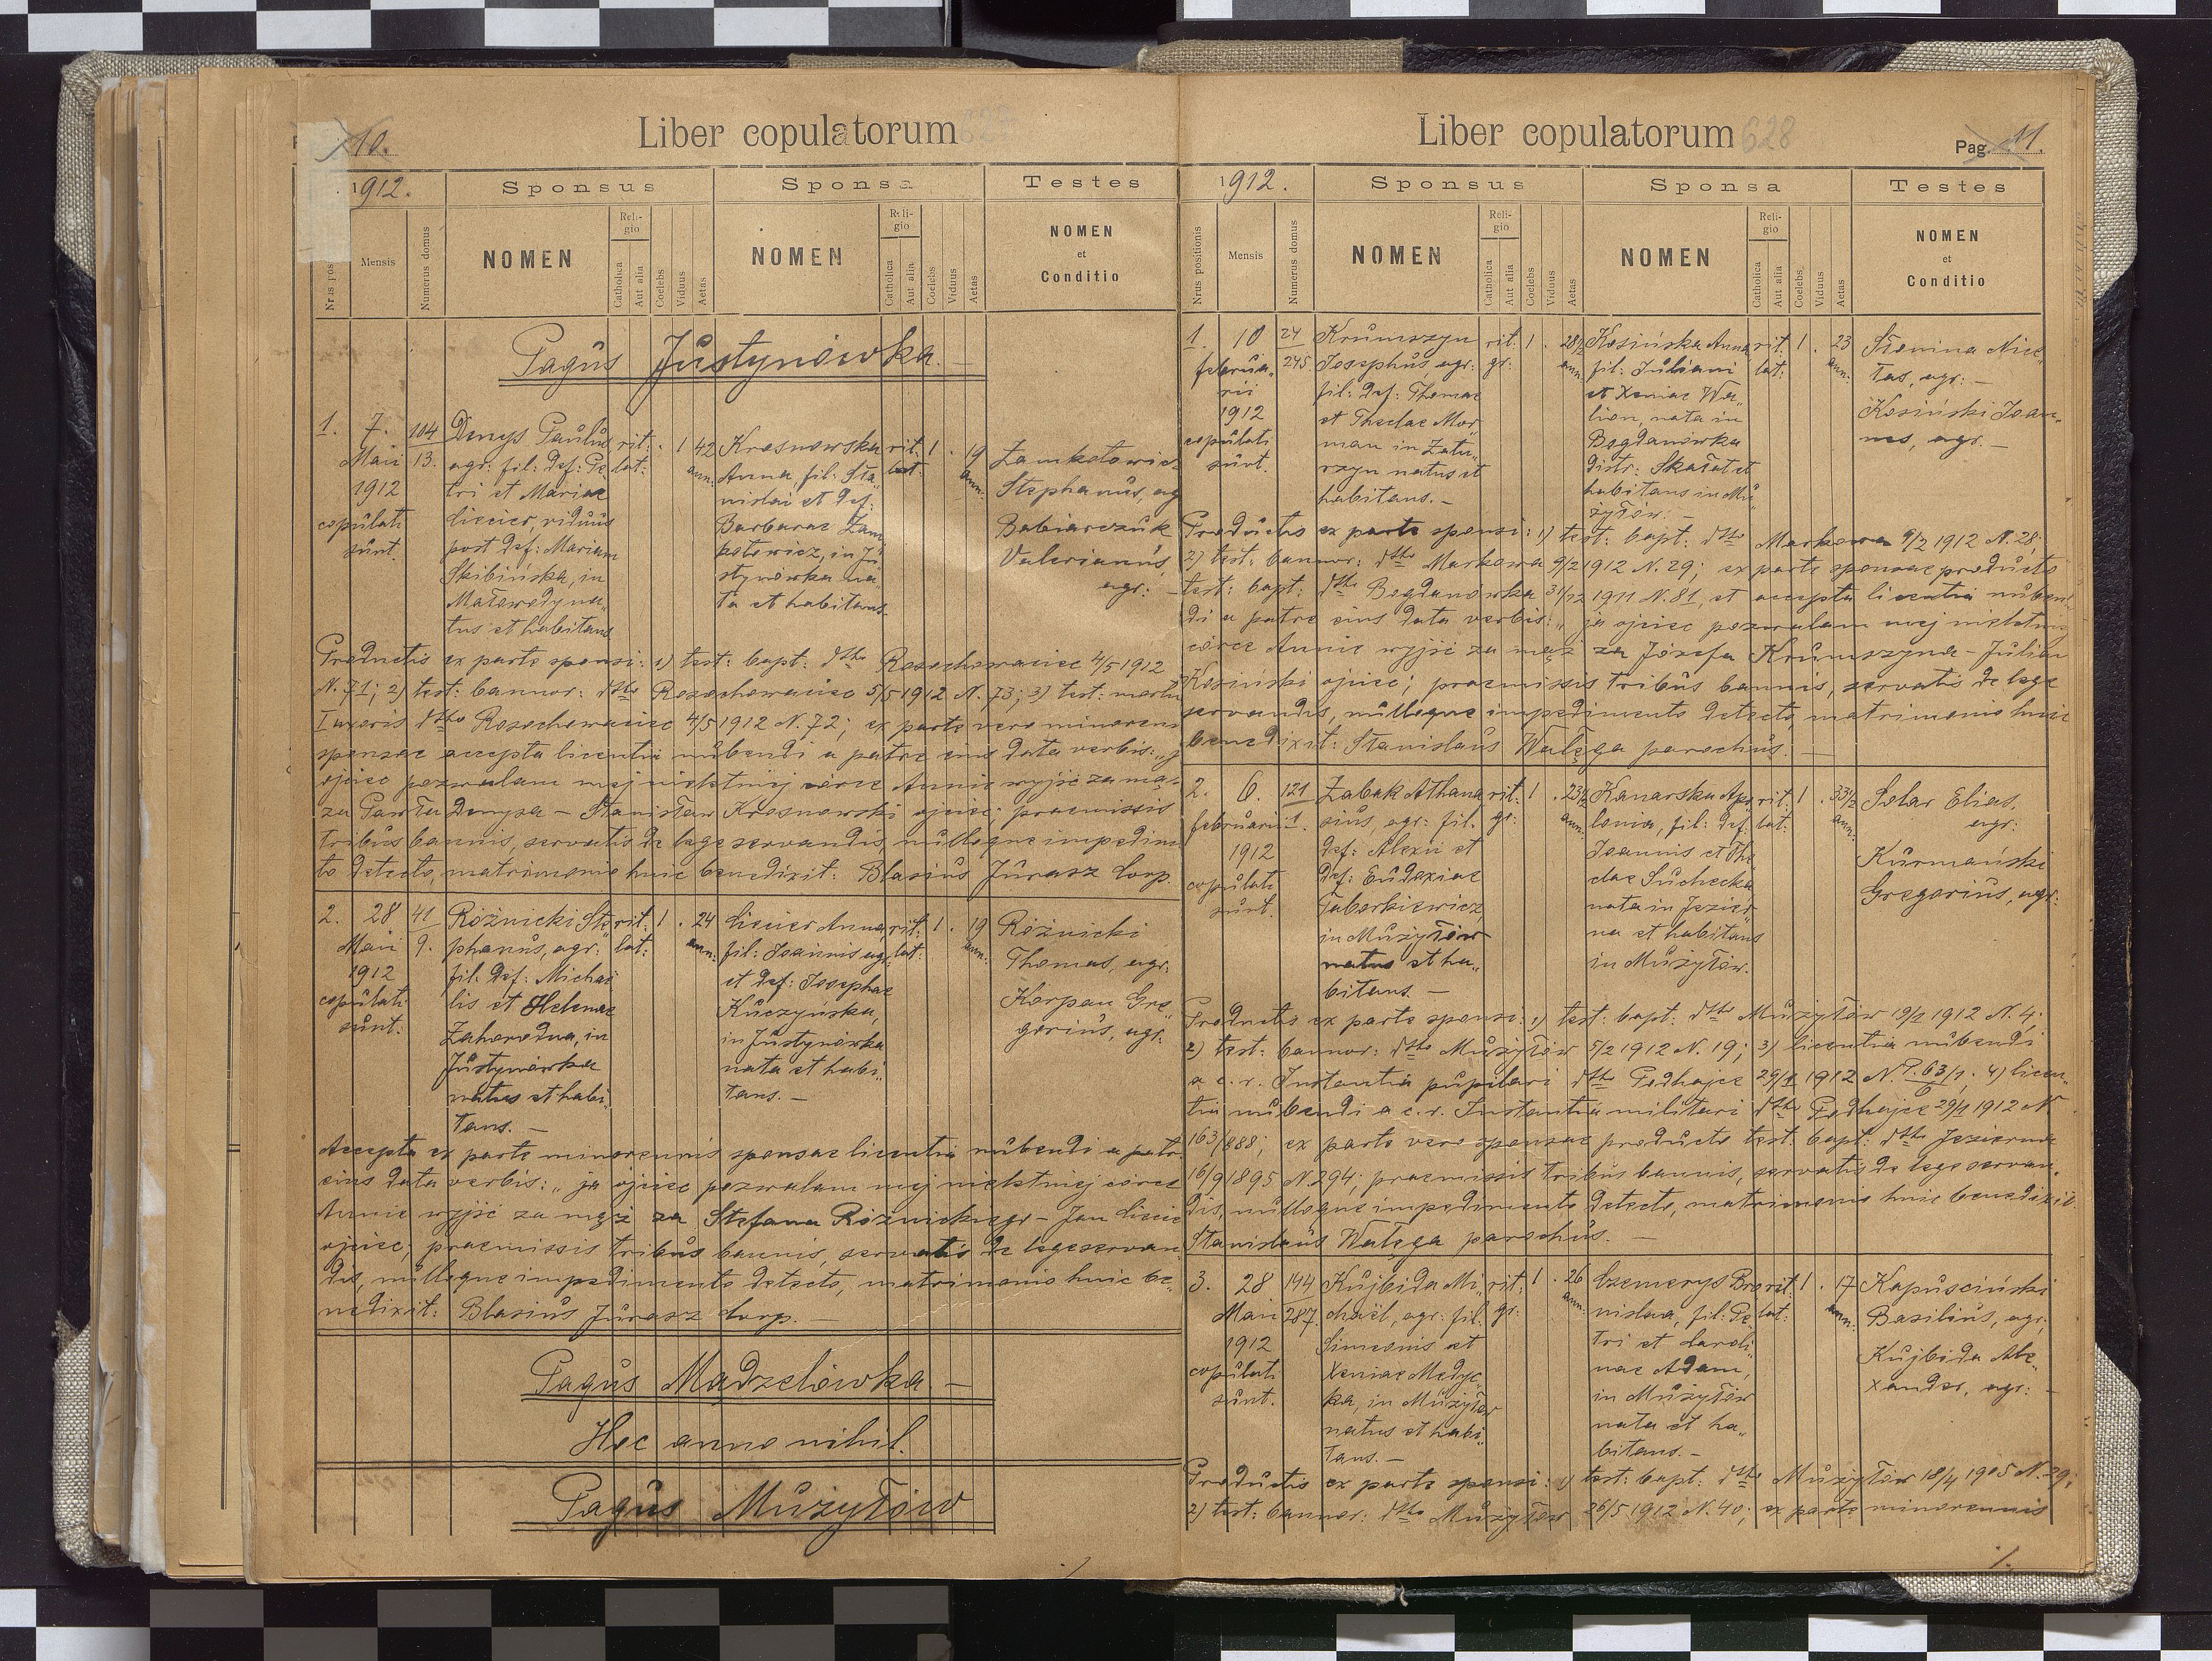 10.
Liber copulatorum 627
1912.
Sponsus
Sponsa
Testes
Nrus pos
Mensis
Numerus domus
NOMEN
Religio
Catholica
Aut alia
Coelebs
Viduus
Aetas
NOMEN
Religio
Catholica
Aut alia
Coelebs
Viduus
Aetas
NOMEN
et
Conditio
Pagus Justynówka. —
1. 7. Maii 1912 copulati sunt.
104
13.
Denys Paulus,
agr. fil: def: Pe
tri et Mariae
Liecier, viduus
post def: Mariam
Skibińska, in
Małowody na„
tus et habitans
rit. lat:
1
42 ann:
Krosnowska
Anna, fil: Sta„
nislai et def:
Barbarae Zam
kotowicz, in Ju
stynówka na„
ta et habitans
rit: lat:
1
19 ann:
Zamkotowicz
Stephanus, ag
Babiarczuk
Valerianus,
agr: —
Productis ex parte sponsi: 1) test: bapt: dtto Rosochowaciec 4/5 1912
N. 71; 2) test: bannor: dtto Rosochowaciec 5/5 1912 N. 73; 3) test: mortis
I uxoris dtto Rosochowaciec 4/5 1912 N. 72; ex parte vero minorenn
sponsae accepta licentia nubendi a patre eius data verbis: „j
ojciec pozwalam mej nieletniej córce Annie wyjść za mą„
za Pawła Denysa — Stanisław Krosnowski ojciec; praemissis
tribus bannis, servatis de lege servandis, nulloque impedimen
to detecto, matrimonio huic benedixit: Blasius Jurasz Coop.
2. 28 Maii 1912 copulati sunt.
41
9.
Róźnicki Ste„
phanus, agr.
fil: def: Michae
lis et Helenae
Zahorodna, in
Justynówka
natus et habi„
tans. —
rit: lat:
1
24 ann:
Liecier Anna,
fil: Joannis agr.
et def: Josephae
Kuczyńska,
in Justynówka
nata et habi„
tans. —
rit: lat:
1
19 ann:
Róźnicki
Thomas, agr.
Korpan Gre„
gorius, agr.
Accepta ex parte minorennis sponsae licentia nubendi a patr.
eius data verbis: „ja ojciec pozwalam mej nieletniej córce
Annie wyjść za mąż za Stefana Róźnickiego — Jan Liecie
ojciec; praemissis tribus bannis, servatis de lege servan„
dis, nulloque impedimento detecto, matrimonio huic be„
nedixit: Blasius Jurasz Coop. —
Pagus Madzelówka —
Hoc anno nihil.
Pagus Mużyłów
Liber copulatorum 628
Pag. 11.
1912.
Sponsus
Sponsa
Testes
Nrus positionis
Mensis
Numerus domus
NOMEN
Religio
Catholica
Aut alia
Coelebs
Viduus
Aetas
NOMEN
Religio
Catholica
Aut alia
Coelebs
Viduus
Aetas
NOMEN
et
Conditio
1. 10 februa„ rii 1912 copulati sunt.
24
245.
Krumszyn
Josephus, agr:
fil: def: Thomae
et Theclae Mor„
man in Zatu„
rzyn natus et
habitans. —
rit: gr:
1
28½ ann:
Kosińska Anna,
fil: Juliani
et Xeniae Wa„
lion, nata in
Bogdanówka
distr: Skałat et
habitans in Mu„
żyłów. —
rit: lat:
1
23 ann:
Nice„
tas, agr: —
Kosiński Joan„
nes, agr. —
Productis ex parte sponsi: 1) test: bapt: dtto Markowa 9/2 1912 N. 28;
2) test: bannor: dtto Markowa 9/2 1912 N. 29; ex parte sponsae producto
test: bapt: dtto Bogdanówka 31/12 1911 N. 81, et accepta licentia nuben„
di a patre eius data verbis: „ja ojciec pozwalam mej nieletniej
córce Annie wyjść za mąż za Józefa Krumszyna — Julian
Kosiński ojciec; praemissis tribus bannis, servatis de lege
servandis, nulloque impedimento detecto, matrimonio huic
benedixit: Stanislaus Wałęga parochus. —
2. 6. februarii 1912 copulati sunt.
121
1.
Zabak Athana
sius, agr: fil.
def: Alexii et
def: Eudoxiae
Taborkiewicz,
in Mużyłów
natus et ha„
bitans. —
rit: gr:
1
23½ ann:
Kanarska Apo
lonia, fil: def:
Joannis et The
clae Suchecka
nata in Jezier
na et habitans
in Mużyłów.
rit: lat:
1
33½ ann:
Solar Elias,
agr:
Kurmański
Gregorius, agr:
Productis ex parte sponsi: 1) test: bapt: dtto Mużyłów 19/1 1912 N. 4;
2) test: bannor: dtto Mużyłów 5/2 1912 N. 19; 3) licentia nubendi
a c. r. Instantia pupilari dtto Podhajce 29/1 1912 N. P. 63/1; 4) licen„
6
tia nubendi a c. r. Instantia militari dtto Podhajce 29/1 1912 N
163/888; ex parte vero sponsae producto test: bapt: dtto Jezierna
16/9 1895 N. 294; praemissis tribus bannis, servatis de lege servan„
dis, nulloque impedimento detecto, matrimonio huic benedixit
Stanislaus Wałęga parochus. —
3. 28 Maii 1912 copulati sunt.
144
287.
Kujbida Mi„
chaël, agr: fil:
Simeonis et
Xeniae Medyc„
ka, in Mużyłów
natus et habi„
tans. —
rit: gr:
1
26 ann:
Czemerys Bro
nislaa, fil: Pe
tri et Caroli„
nae Adam,
in Mużyłów
nata et ha„
bitans. —
rit: lat:
1
17 ann:
Kapusciński
Basilius, agr,
Kujbida Ale„
xander, agr: —
Productis ex parte sponsi: 1) test: bapt: dtto Mużyłów 18/4 1905 N. 29;
2) test: bannor: dtto Mużyłów 26/5 1912 N. 40; ex parte minorennis
./.